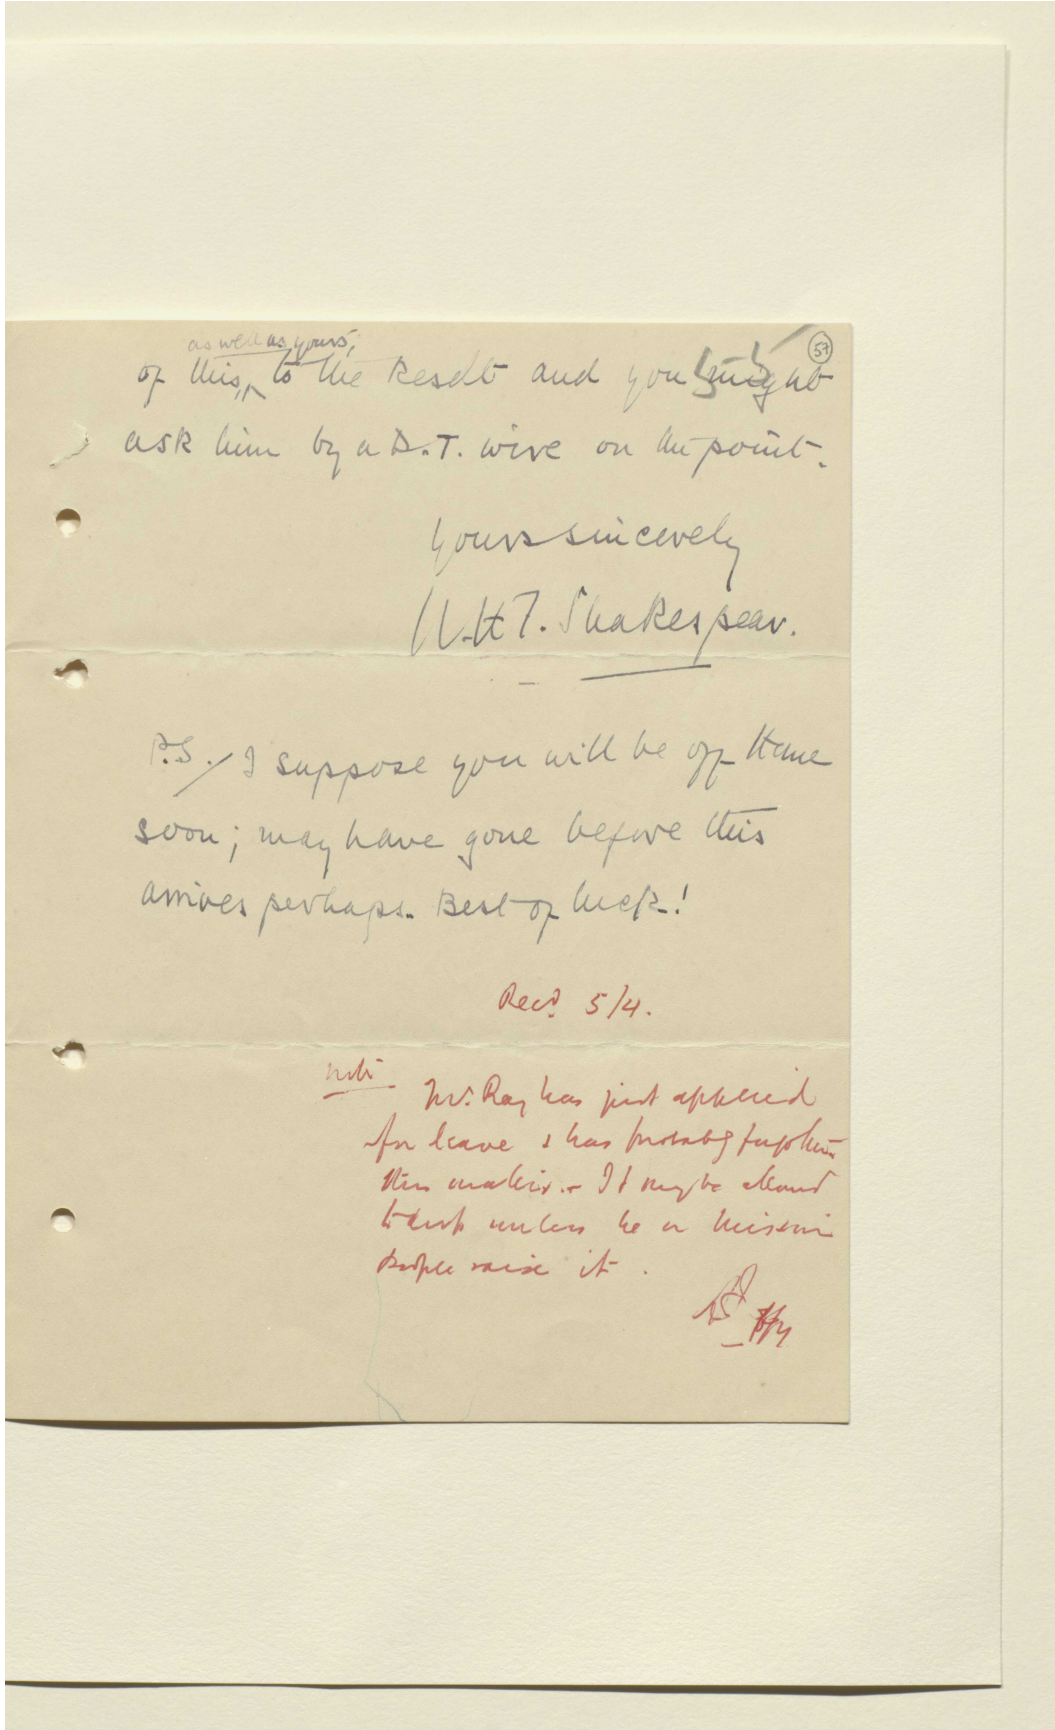 57
as well as yours,
of this, to the Resdt and you might
ask him by a D.T. wire on the point.
Yours sincerely
W.H.I. Shakespear.
P.S./ I suppose you will be off Home
soon; may have gone before this
arrives perhaps. Best of luck!
Recd. 5/4.
Note
Mr. Ray has just applied
for leave & has probably forgotten
this matter. - It may be allowed
to drop unless he or Mission
people raise it.